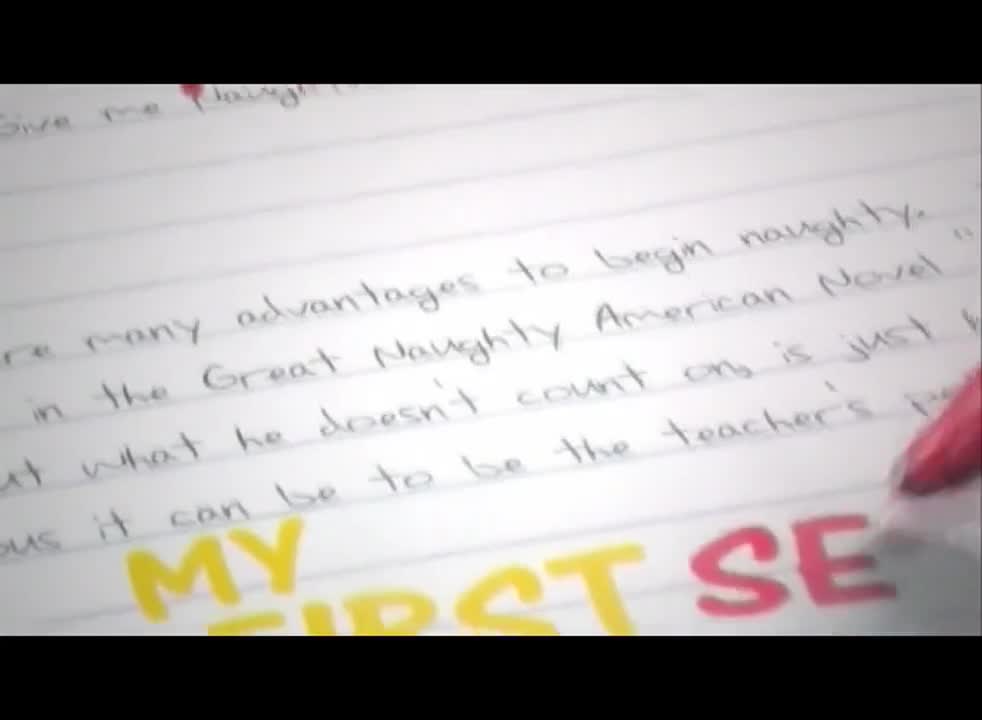 Give me
many advantages to begin naughty.
in the Great Naughty American Novel "
what he doesn't count on, is just
it can be to be the teacher's
MY
FIRST SE